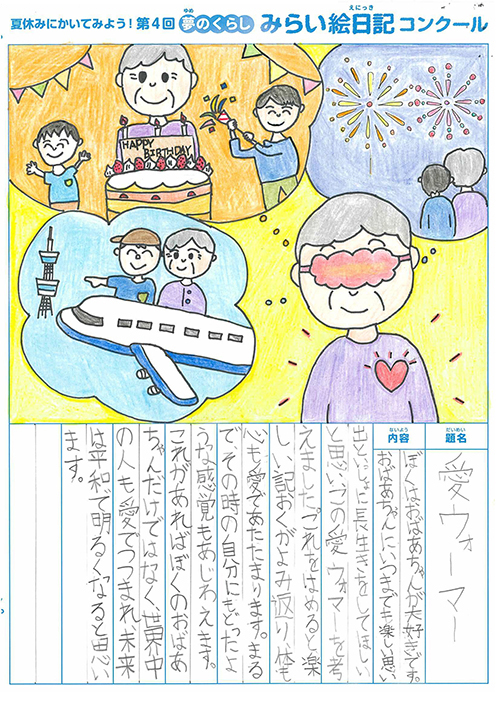 夏休みにかいてみよう！第4回 夢のくらし みらい絵日記 コンクール
ゆめ
えにっき
HAPPY
BIRTHDAY
だいめい
題名
愛ウォーマー
ないよう
内容
ぼくはおばあちゃんが大好きです。
おばあちゃんにいつまでも楽しい思い
出といっしょに長生きをしてほしい
と思いこの愛ウォマーを考
えました。これをはめると楽
しい記おくがよみ返り、体も
心も愛であたたまります。まる
でその時の自分にもどったよ
うな感覚もあじわえます。
これがあればぼくのおばあ
ちゃんだけではなく、世界中
の人も愛でつつまれ未来
は平和で明るくなると思い
ます。